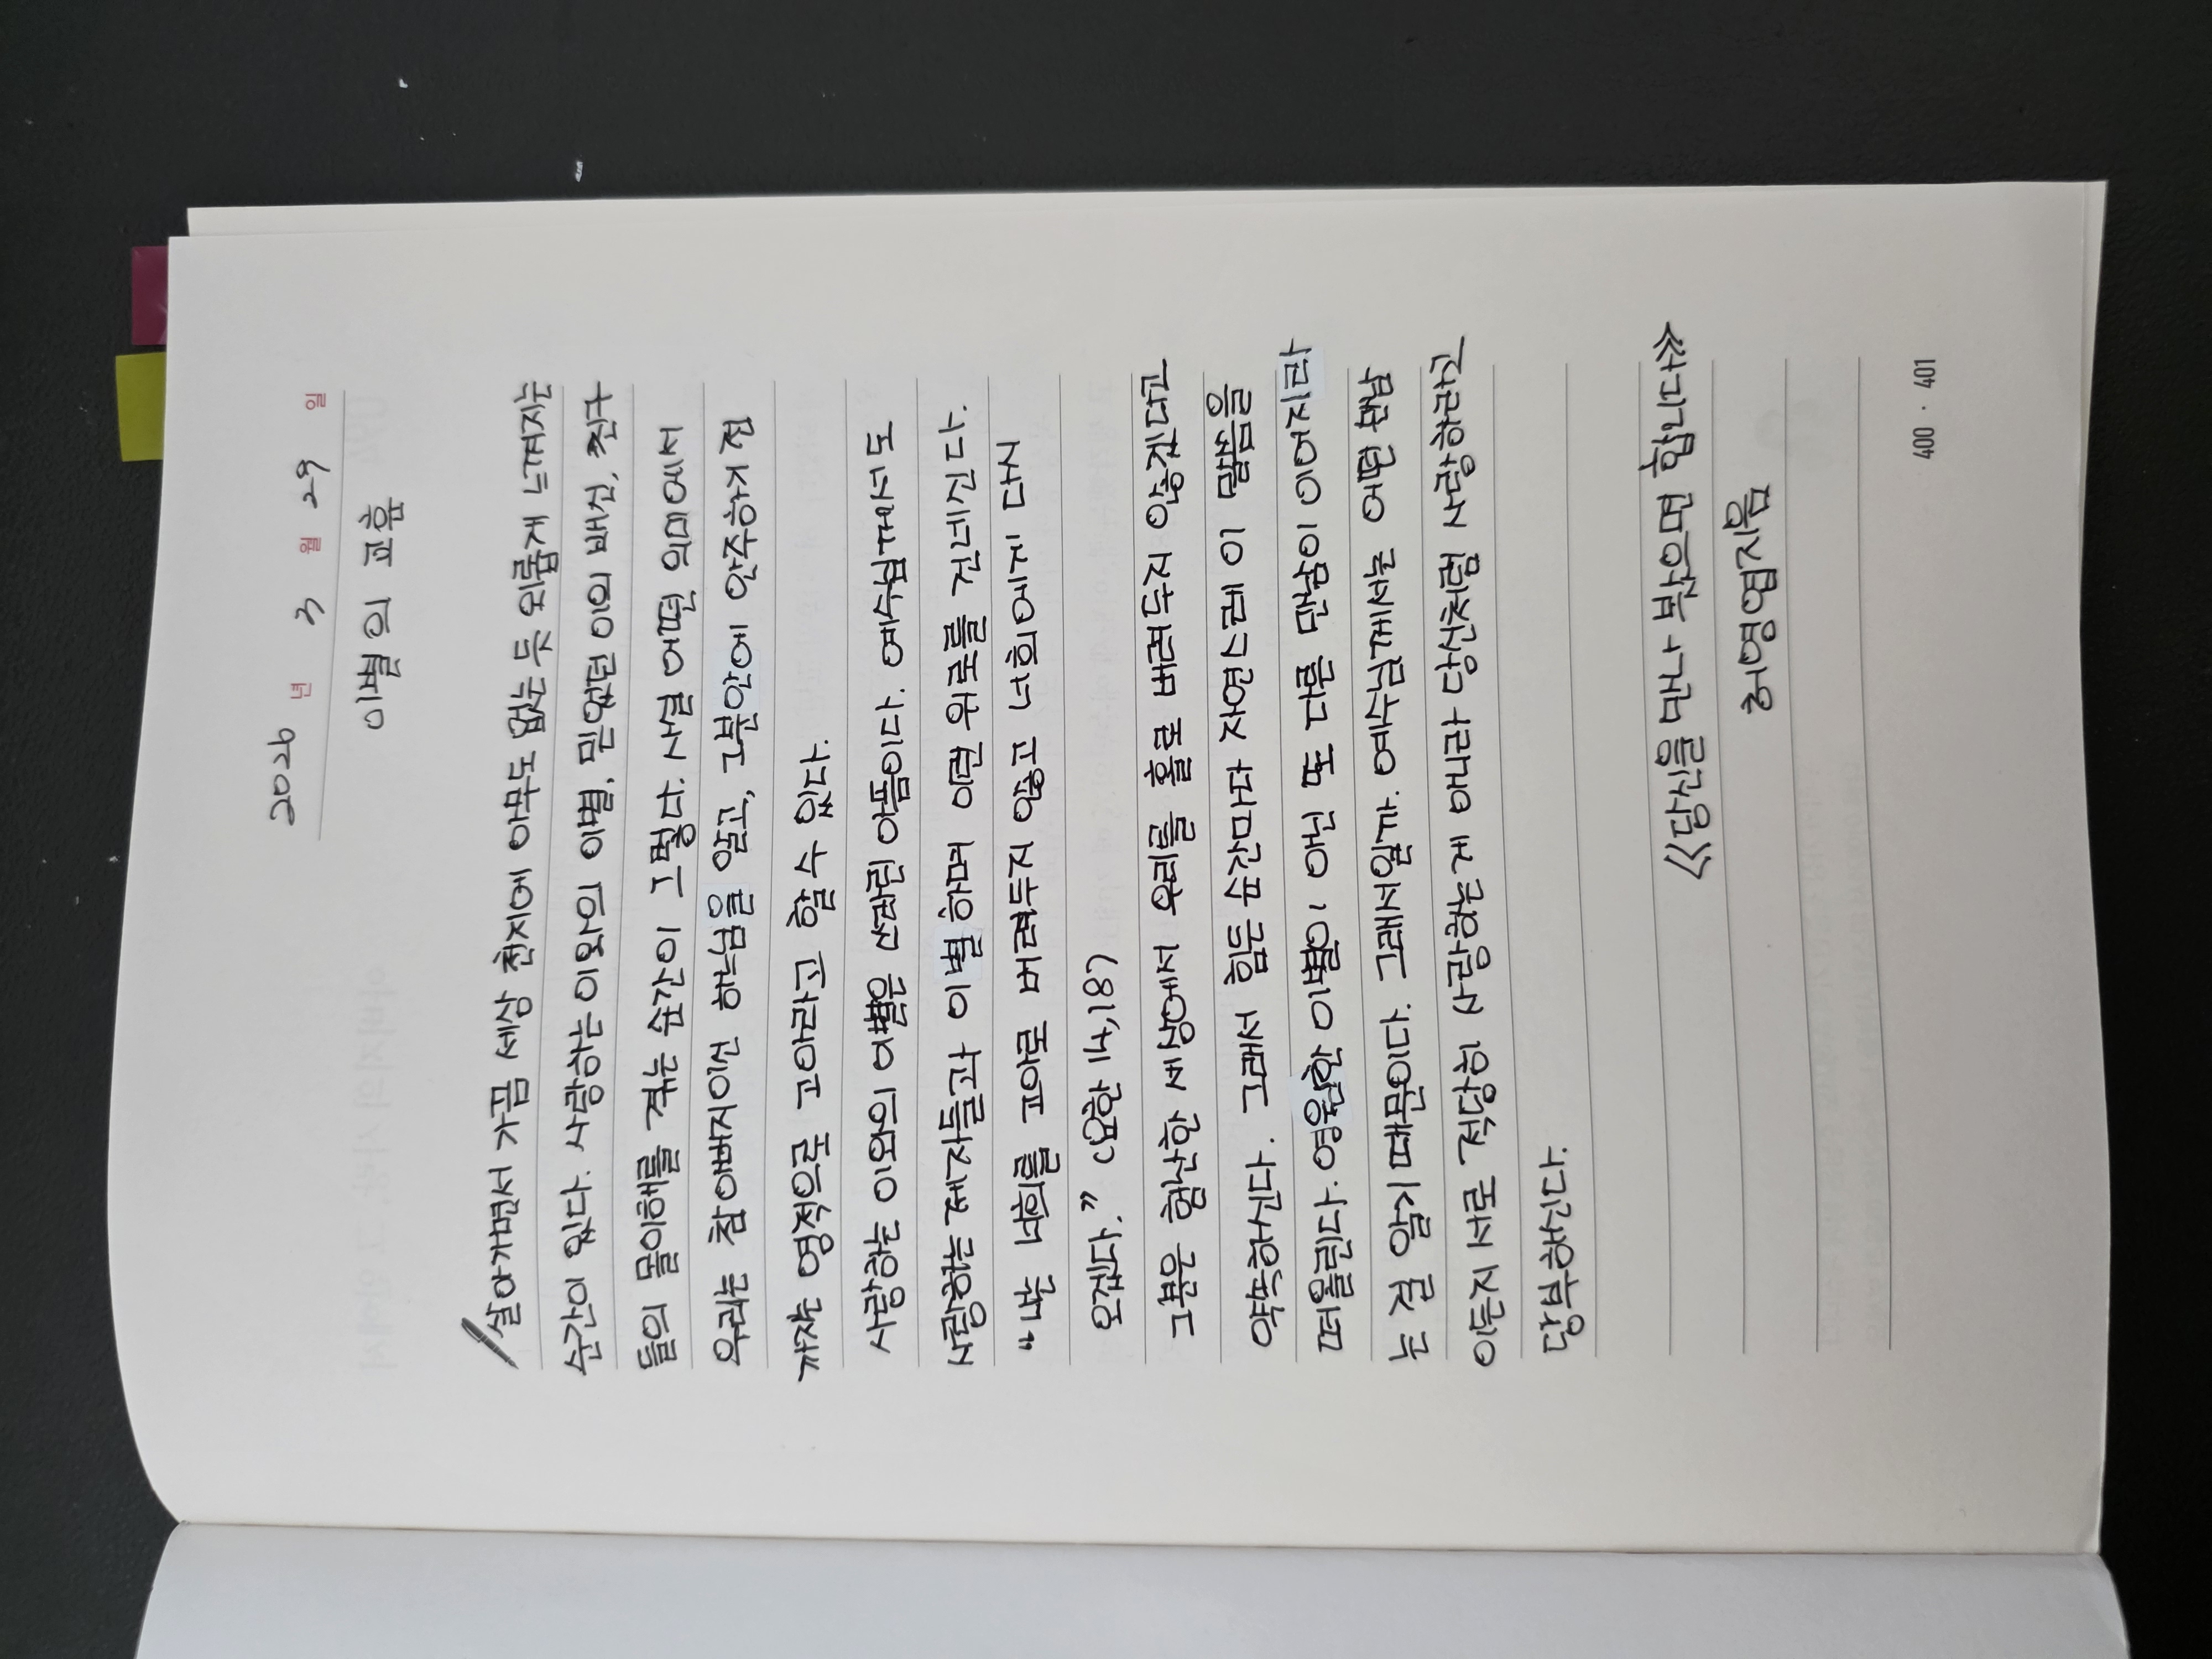 2026 년 3 월 29 일
이별의 교훈
살아가면서 가끔 세상 천지에 아무도 없는 듯 외롭게 느껴지는
순간이 있다. 사랑하는 이와의 이별, 믿었던 이의 배신, 친구
들의 몰이해를 겪는 순간이 그렇다. 사실 어떤 의미에서
우리는 참 아빠지이신 하느님을 알고, 그분 안에 안주하기 전
까지는 영적으로 고아라고 할 수 있다.
사랑하는 이와의 이별은 쓰라린 아픔이다. 예수님께서도
사랑하는 제자들과 이별하며 이런 위로를 건네신다.
"나는 너희를 고아로 버려두지 않고 너희에게 다시
오겠다." (요한 14,18)
그분은 험난한 세상에서 우리를 홀로 버려두지 않겠다고
약속하신다. 그래서 힘든 순간마다 자연스레 이 말씀을
떠올린다. 영원한 이별이 아닌 또 다른 만남이 이어지리라
는 걸 알기 때문이다. 그래서일까. 예수님께서는 어떤 분담
이든지 서로 적당히 사랑하는 게 아니라 당신처럼 사랑하라고
당부하신다.
《당신을 만나 부쩍으면 합니다》
허영엽 지음
400 · 401